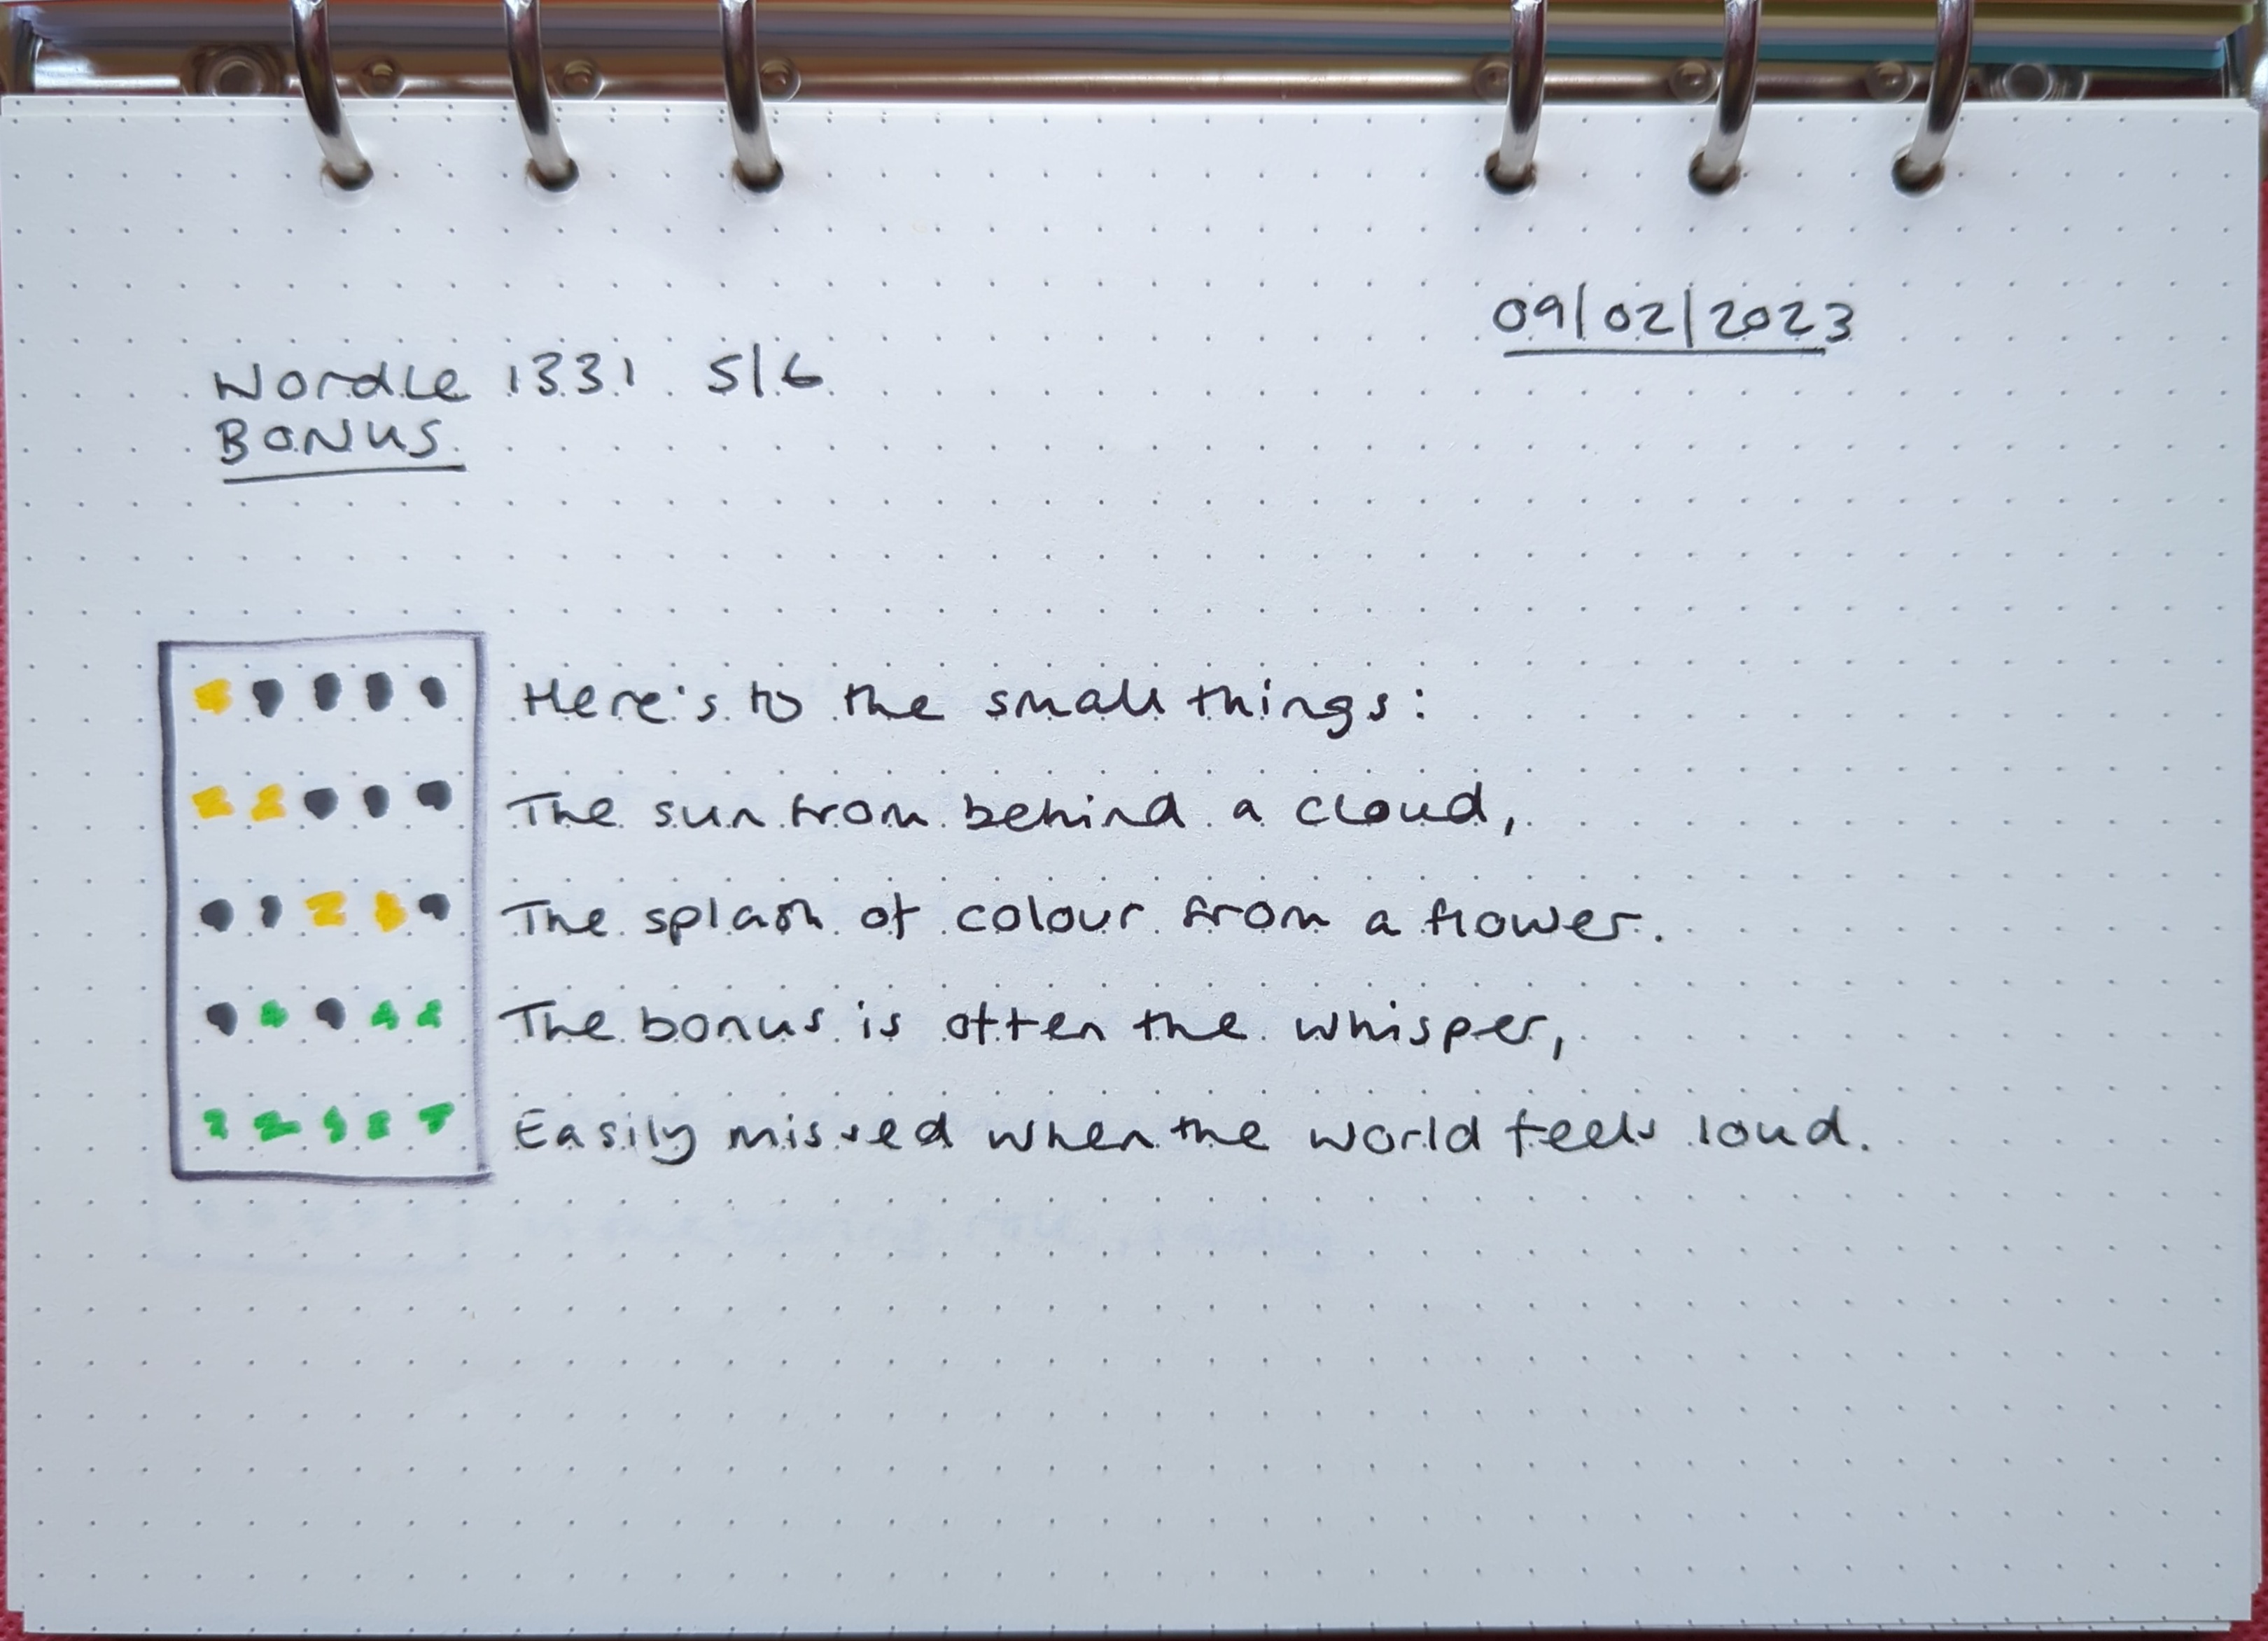 09/02/2023
Wordle 1331 5/6
BONUS
Here's to the small things:
The sun from behind a cloud,
The splash of colour from a flower.
The bonus is often the whisper,
Easily missed when the world feels loud.